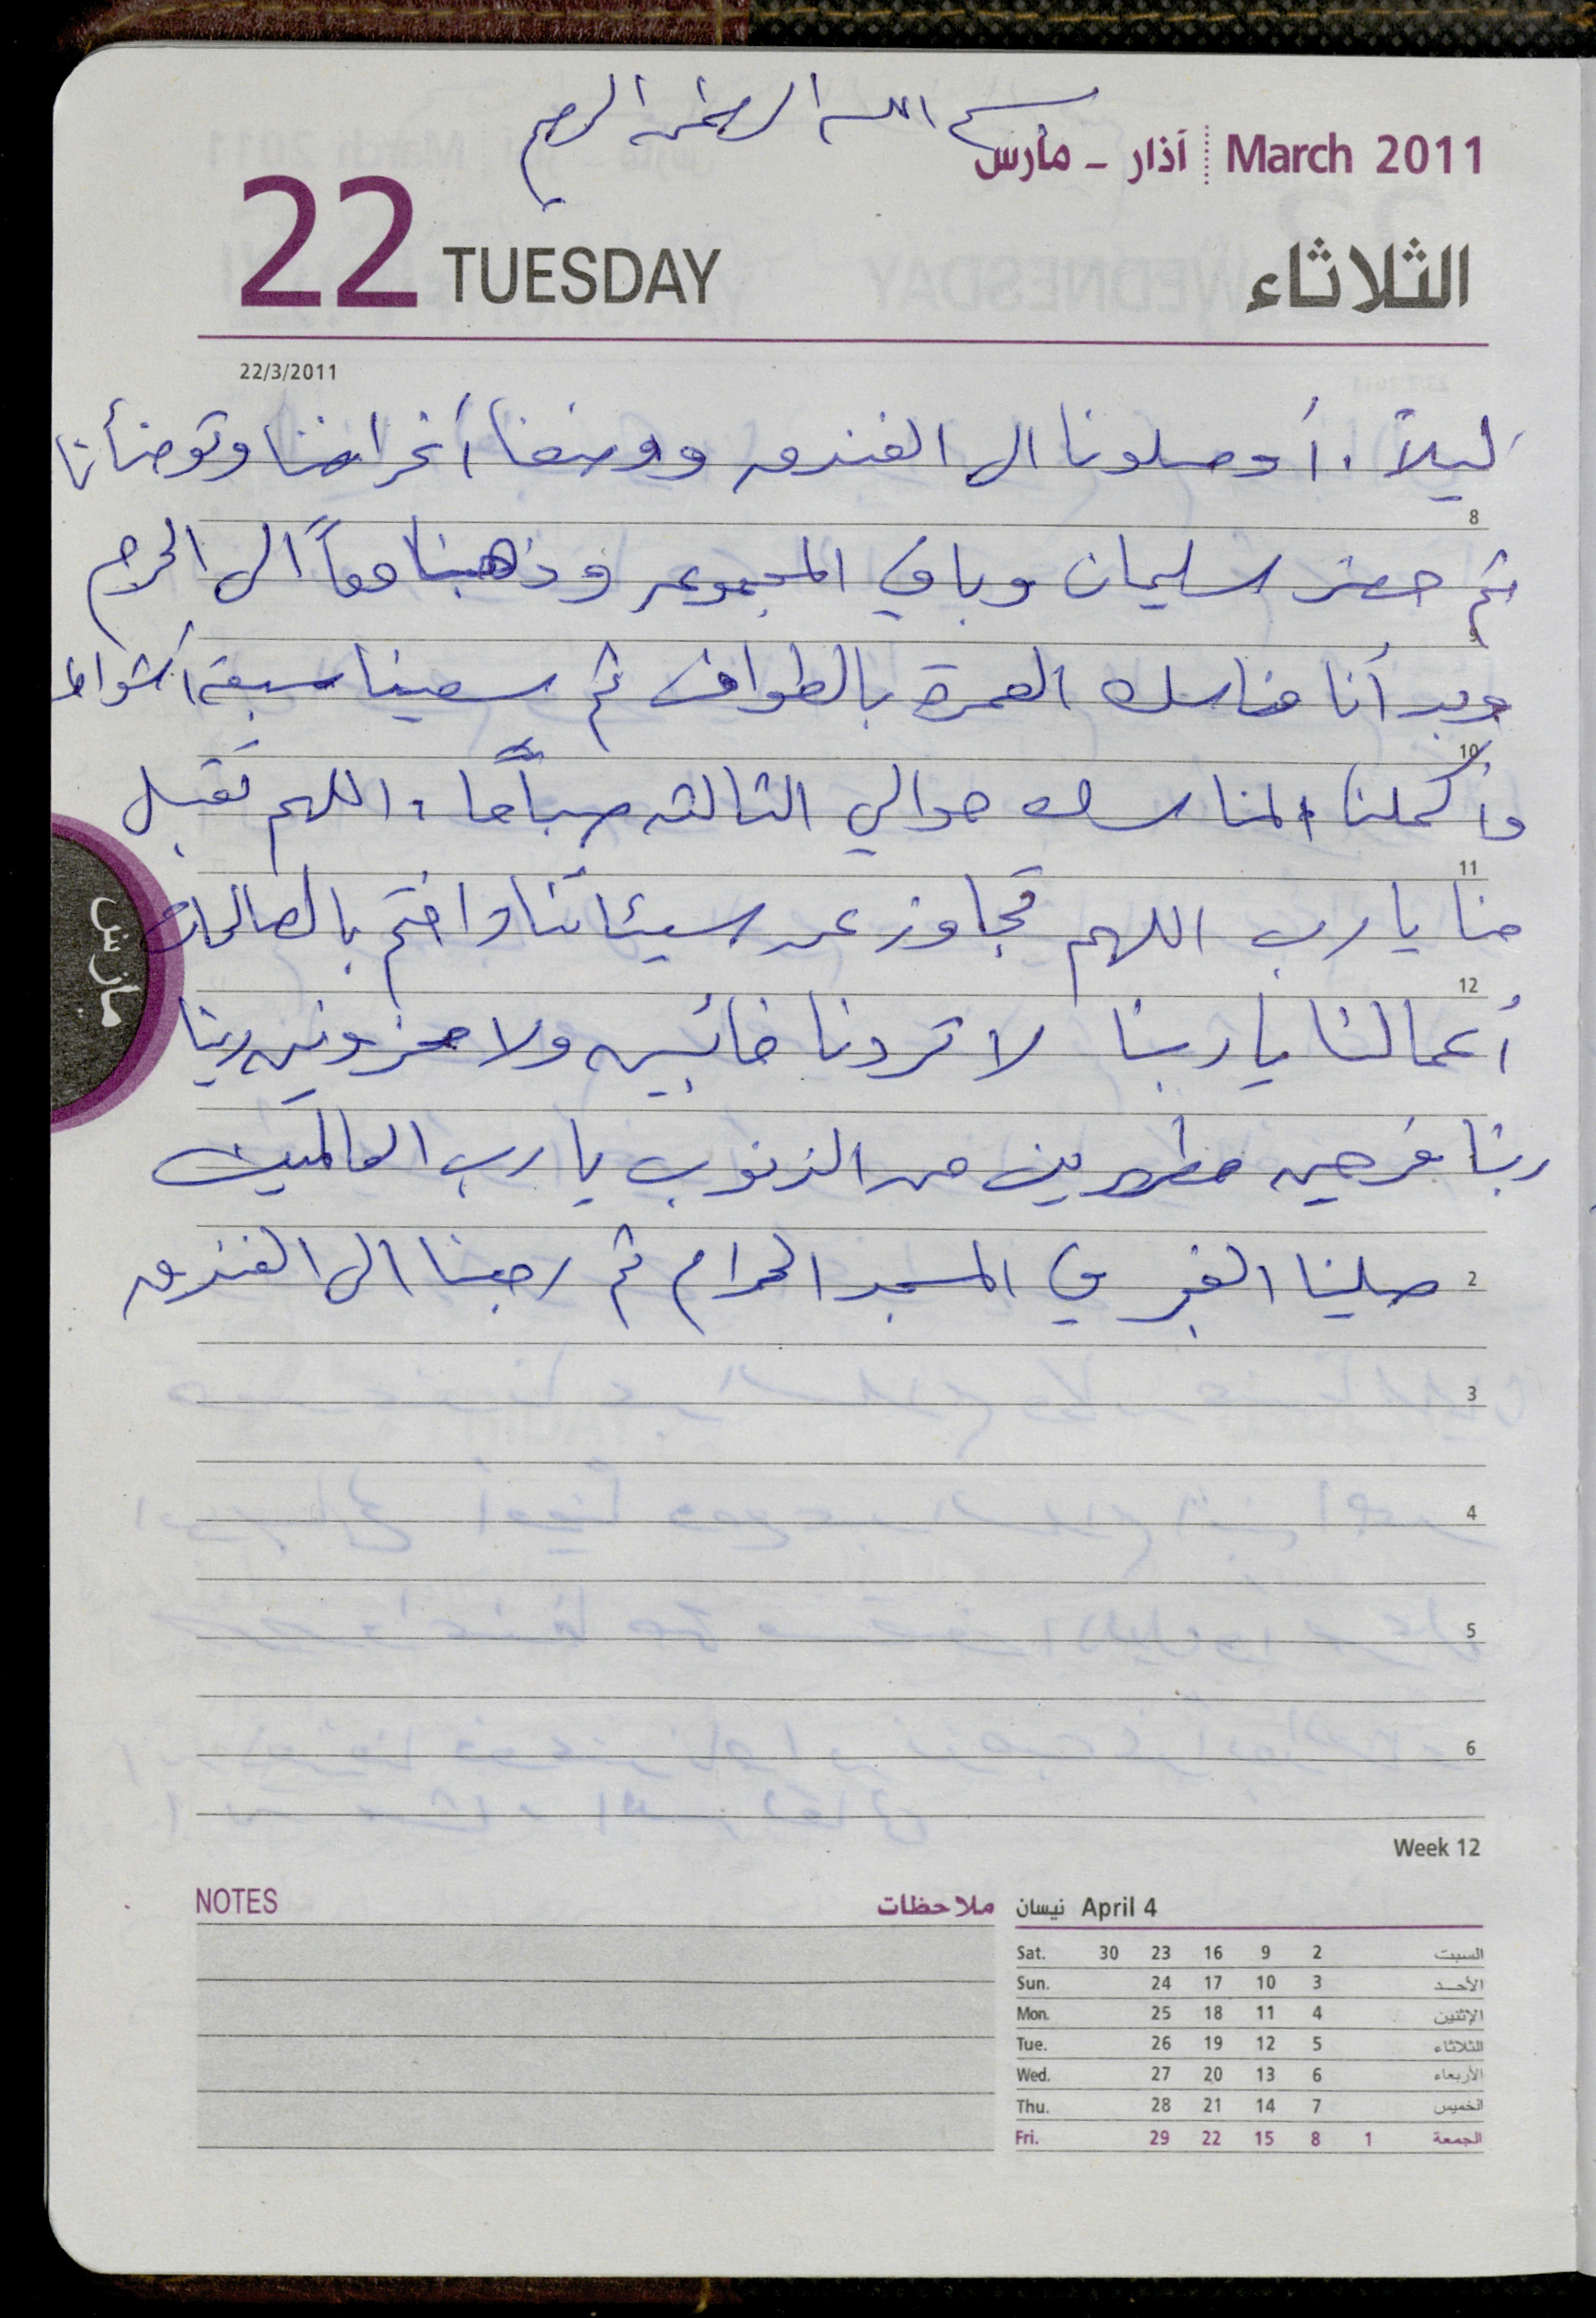 بسم الله الرحمن الرحيم
آذار - مارس March 2011
22 TUESDAY الثلاثاء
22/3/2011
ليلاً. أوصلونا الى الفندق ووضعنا أغراضنا وتوضأنا
8
ثم حضر سليمان وباقي المجموعه وذهبنا معاً الى الحرم
9
وبدأنا مناسك العمرة بالطواف ثم سعينا سبعة أشواط
10
وأكملنا المناسك حوالي الثالثه صباحاً، اللهم تقبل
11
منا يا رب اللهم تجاوز عن سيئاتنا واختم بالصالحات
12
أعمالنا يا ربنا لا تردنا خائبين ولا محزونين ربنا
ربنا فرحين مطهرين من الذنوب يا رب العالمين
2 صلينا الفجر في المسجد الحرام ثم رجعنا الى الفندق
3
4
5
6
مارس
Week 12
NOTES ملاحظات
نيسان April 4
Sat. 30 23 16 9 2 السبت
Sun. 24 17 10 3 الأحد
Mon. 25 18 11 4 الإثنين
Tue. 26 19 12 5 الثلاثاء
Wed. 27 20 13 6 الأربعاء
Thu. 28 21 14 7 الخميس
Fri. 29 22 15 8 1 الجمعة